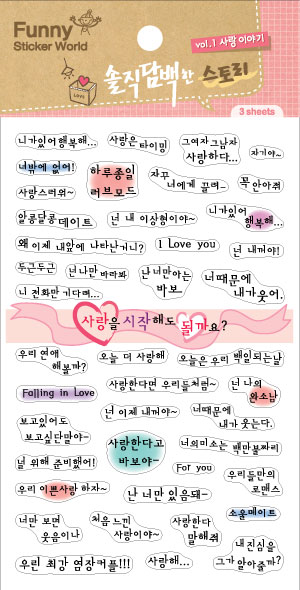 Funny
Sticker World
vol.1 사랑 이야기
솔직담백한 스토리
LOVE
3 sheets
니가있어행복해...
사랑은 타이밍
그여자 그남자
사랑하다...
자기야~
너밖에 없어!
하루종일
러브모드
자꾸
너에게 끌려-
꼭 안아줘
사랑스러워~
알콩달콩데이트
넌 내 이상형이야~
니가있어
행복해...
왜 이제 내앞에 나타난거니?
I Love you
넌 내꺼야!
두근두근
넌나만 바라봐
난 너만아는
바보
너때문에
내가웃어.
니 전화만 기다려...
사랑을 시작해도 될까요?
우리 연애
해볼까?
오늘 더 사랑해
오늘은 우리 백일되는날
Falling in Love
사랑한다면 우리들처럼~
넌 나의
완소남
보고있어도
보고싶단말야-
넌 이제 내꺼야!
너때문에
내가 웃는다.
사랑한다고
바보야-
너의미소는 백만불짜리
널 위해 준비했어!
For you
우리들만의
로맨스
우리 이쁜사랑 하자~
난 너만 있음돼-
소울메이트
너만 보면
웃음이나
처음 느낀
사랑이야~
사랑한다
말해줘
내진심을
그가 알아줄까?
우린 최강 염장커플!!!
사랑해...